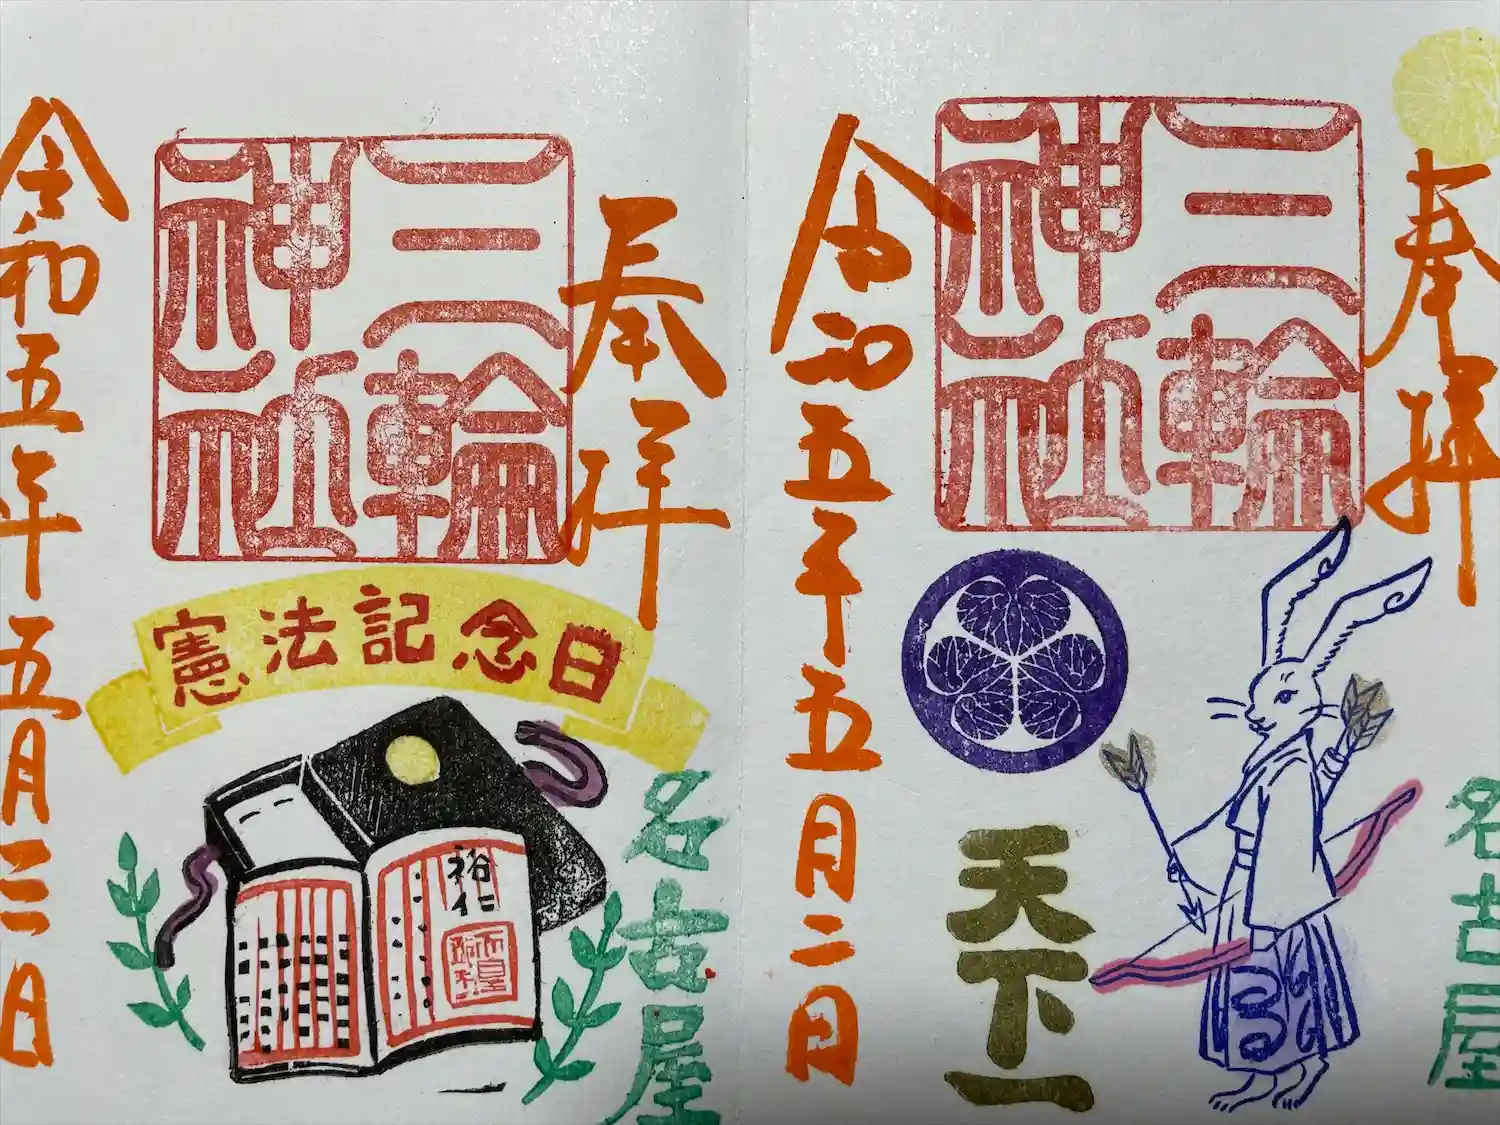 奉拝
三輪
神社
名古屋
天下一
令和五年五月二日
奉拝
三輪
神社
憲法記念日
名古屋
裕仁
令和五年五月三日